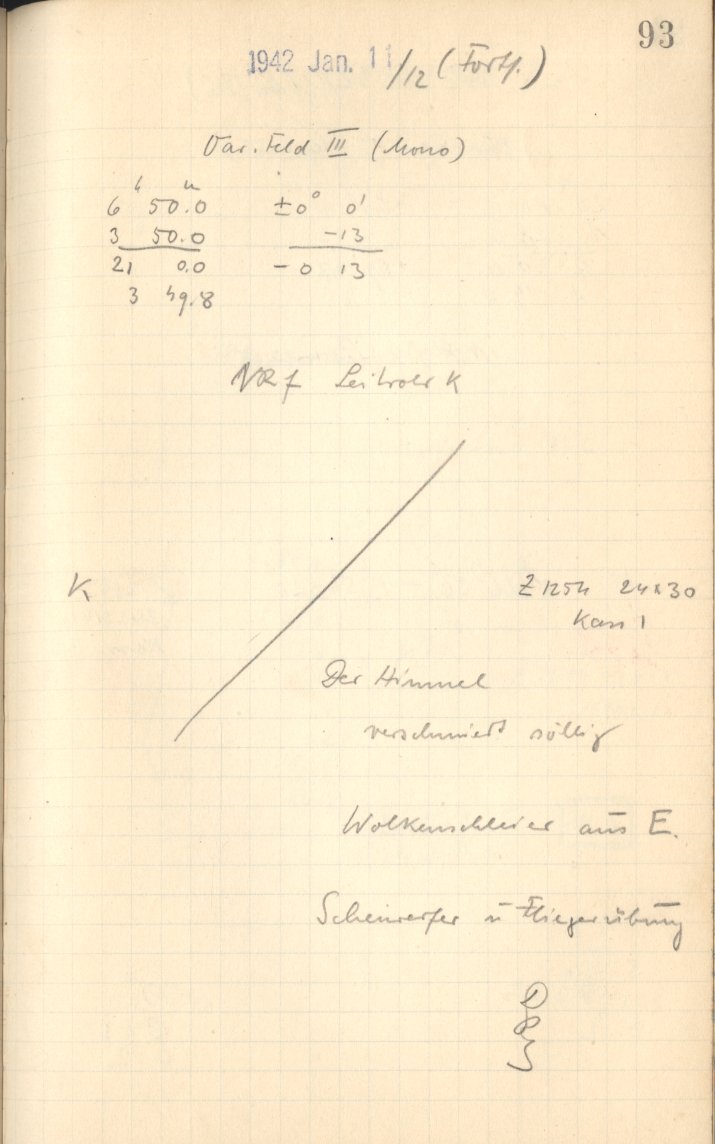 93
1942 Jan. 11/12 (Forts.)
Var. Feld III (Mono)
h m
6 50.0 ±0° 0'
3 50.0 -13
21 0.0 - 0 13
3 49.8
Leitrohr K
K
Z 1254 24x30
Kass 1
Der Himmel
verschmiert völlig
Wolkenschleier aus E.
Scheinwerfer u Fliegerübung